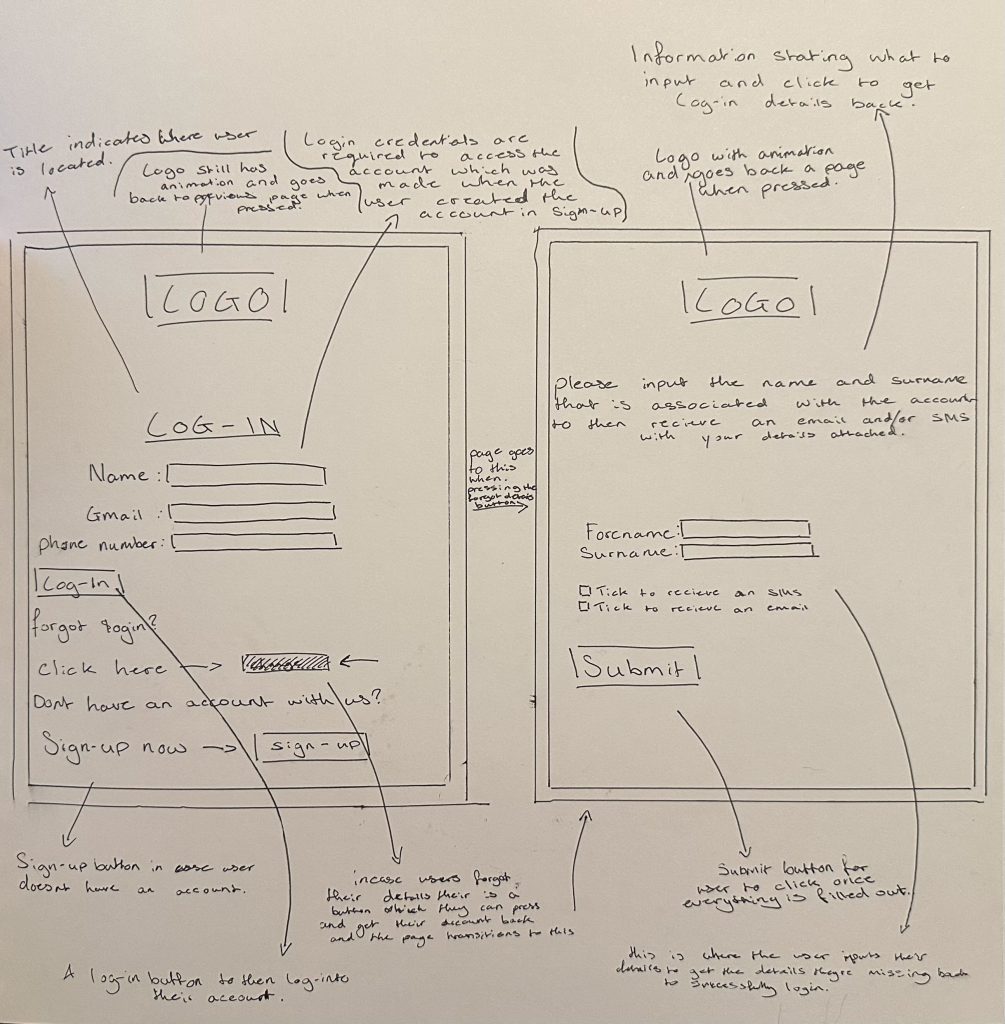 Information stating what to
input and click to get
Log-in details back.
Title indicates where user
is located.
Logo still has
animation and goes
back to previous page when
pressed.
Login credentials are
required to access the
account which was
made when the
user created the
account in Sign-up
Logo with animation
and goes back a page
when pressed.
LOGO
LOG-IN
Name:
Gmail:
phone number:
Log-In
forgot login?
Click here
Dont have an account with us?
Sign-up now
sign-up
page goes
to this
when
pressing the
forgot details
button
LOGO
please input the name and surname
that is associated with the account
to then recieve an email and/or SMS
with your details attached.
Forename:
Surname:
Tick to recieve an SMS
Tick to recieve an email
Submit
Sign-up button in case user
doesnt have an account.
A log-in button to then log-into
their account.
incase users forgot
their details their is a
button which they can press
and get their account back
and the page transitions to this
Submit button for
user to click once
everything is filled out.
this is where the user inputs their
details to get the details theyre missing back
to successfully login.